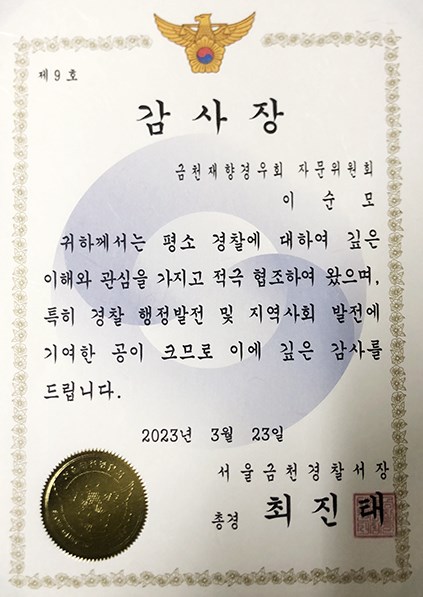 제 9 호
감 사 장
금천재향경우회 자문위원회
이 순 모
귀하께서는 평소 경찰에 대하여 깊은
이해와 관심을 가지고 적극 협조하여 왔으며,
특히 경찰 행정발전 및 지역사회 발전에
기여한 공이 크므로 이에 깊은 감사를
드립니다.
2023년 3월 23일
서울금천경찰서장
총경 최 진 태